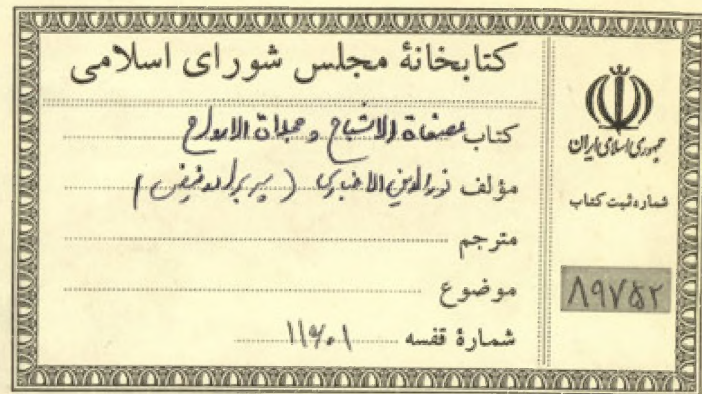 کتابخانهٔ مجلس شورای اسلامی
کتاب مصفاة الاشباح و مجلاة الارواح
مؤلف نورالدین الاخباری (پسر برادر فیض)
مترجم
موضوع
شمارهٔ قفسه ۱۱۶۰۱
جمهوری اسلامی ایران
شماره ثبت کتاب
۸۹۷۵۲